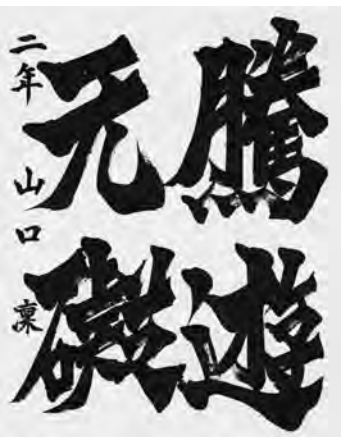 騰遊
无礙
二年 山口 凜